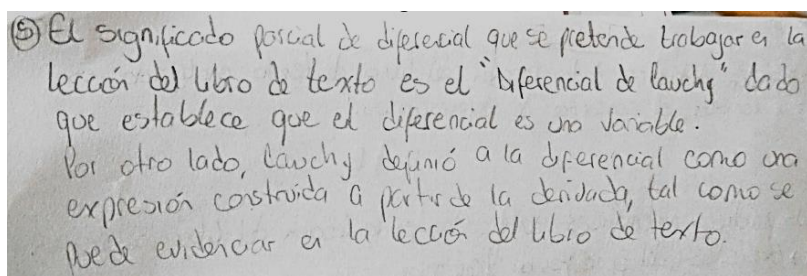 ⑤ El significado parcial de diferencial que se pretende trabajar en la
lección del libro de texto es el "Diferencial de Cauchy" dado
que establece que el diferencial es una variable.
Por otro lado, Cauchy definió a la diferencial como una
expresión construida a partir de la derivada, tal como se
puede evidenciar en la lección del libro de texto.